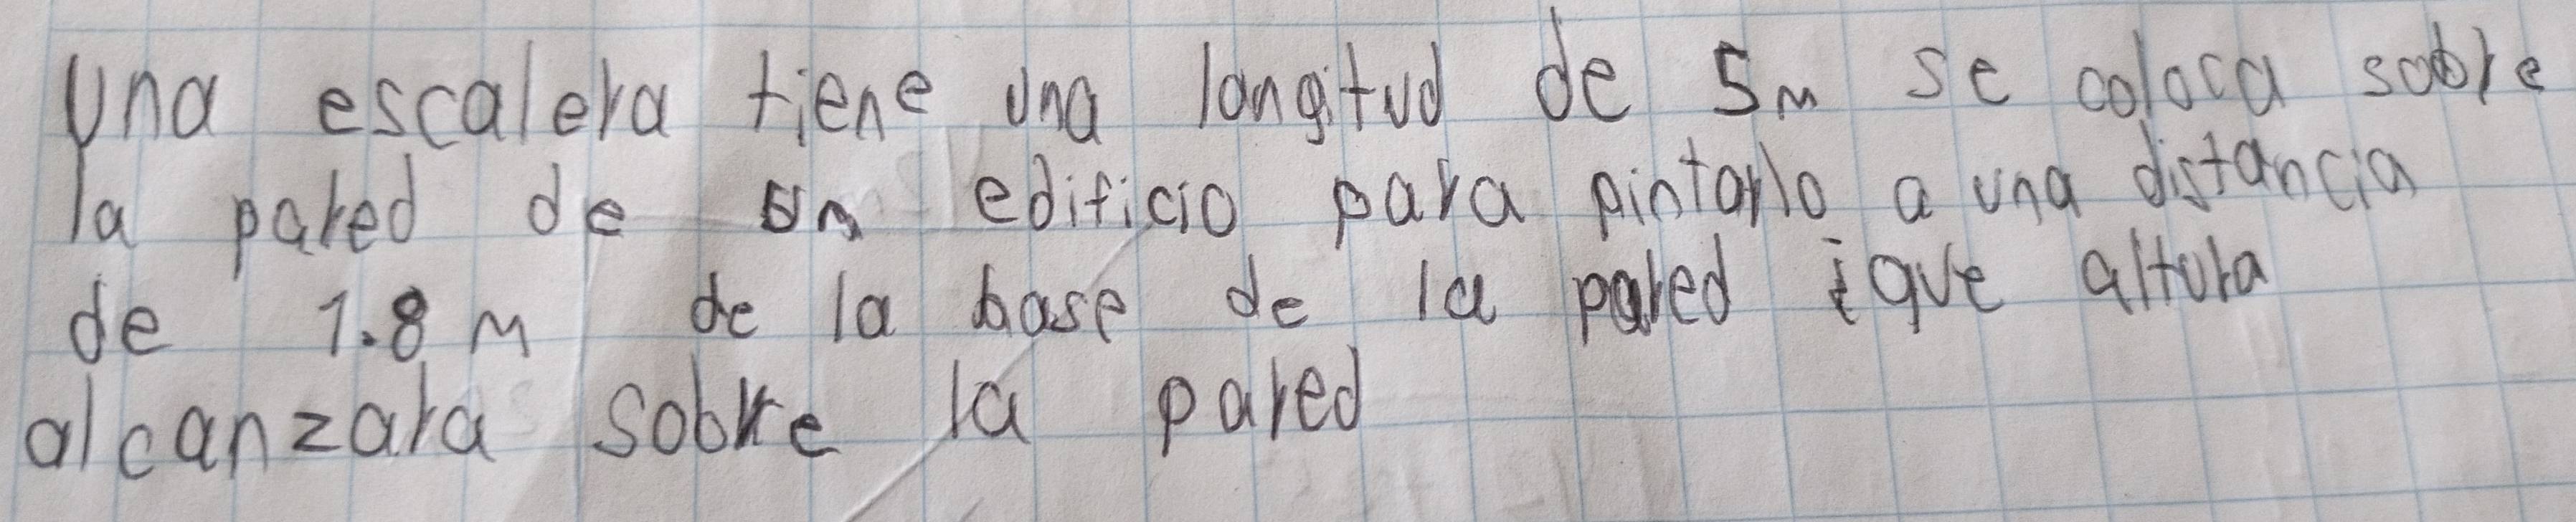 Una escalera tiene una longitud de 5m se coloca sobre
la pared de un edificio para pintarlo a una distancia
de 1.8 m de la base de la pared ¿que altura
alcanzara sobre la pared